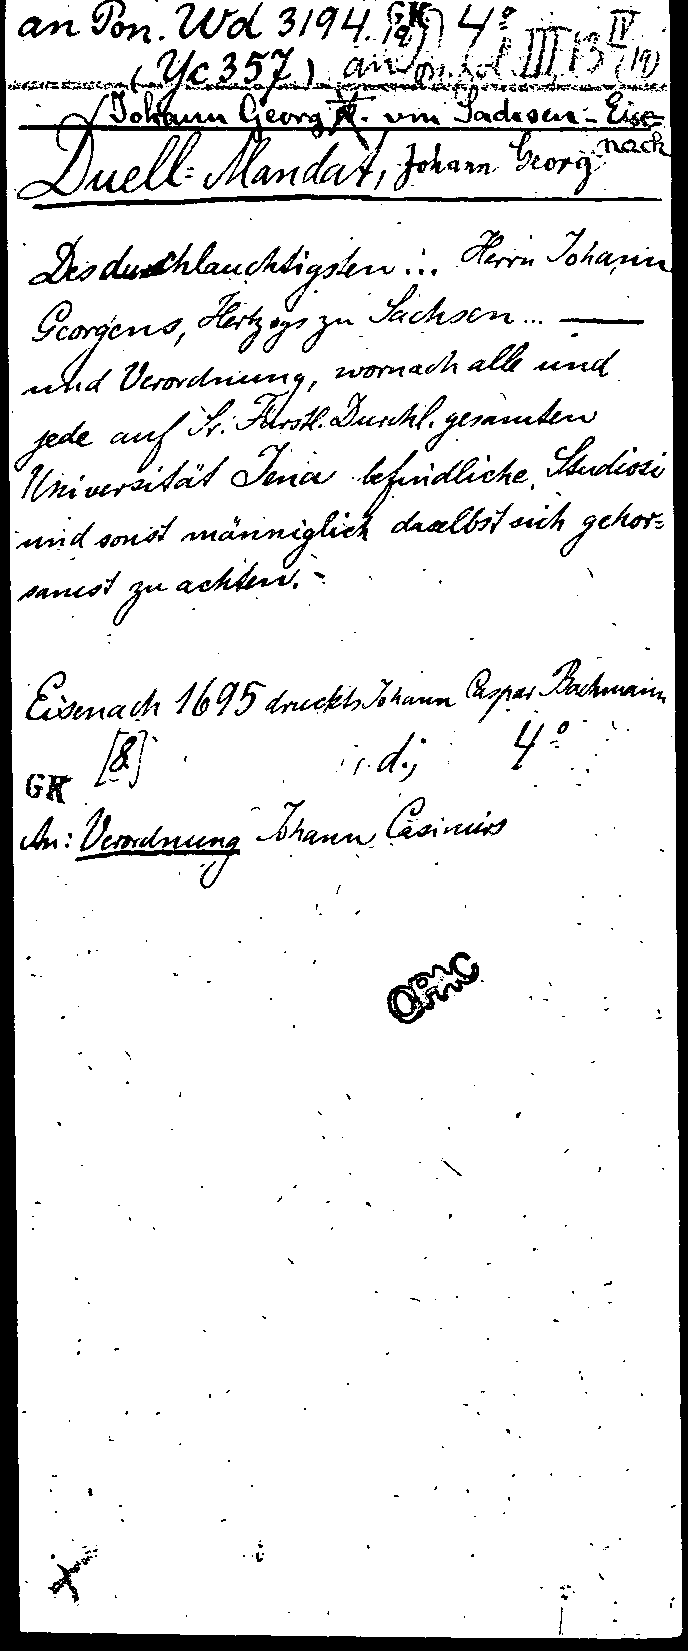 an Pon. Wd 3194. GK 4º
(Yc 357) an III 13 IV
Johann Georg II. von Sachsen-Eise-
nach
Duell-Mandat, Johann Georg
Des durchlauchtigsten ... Herrn Johann
Georgens, Hertzogs zu Sachsen ... —
und Verordnung, wornach alle und
jede auf Sr. Fürstl. Durchl. gesamten
Universität Jena befindliche Studiosi
und sonst männiglich daselbst sich gehor-
samst zu achten. -
Eisenach 1695 druckts Johann Caspar Bachmann
[8] d. 4º
GK
An: Verordnung Johann Casimirs
OPAC